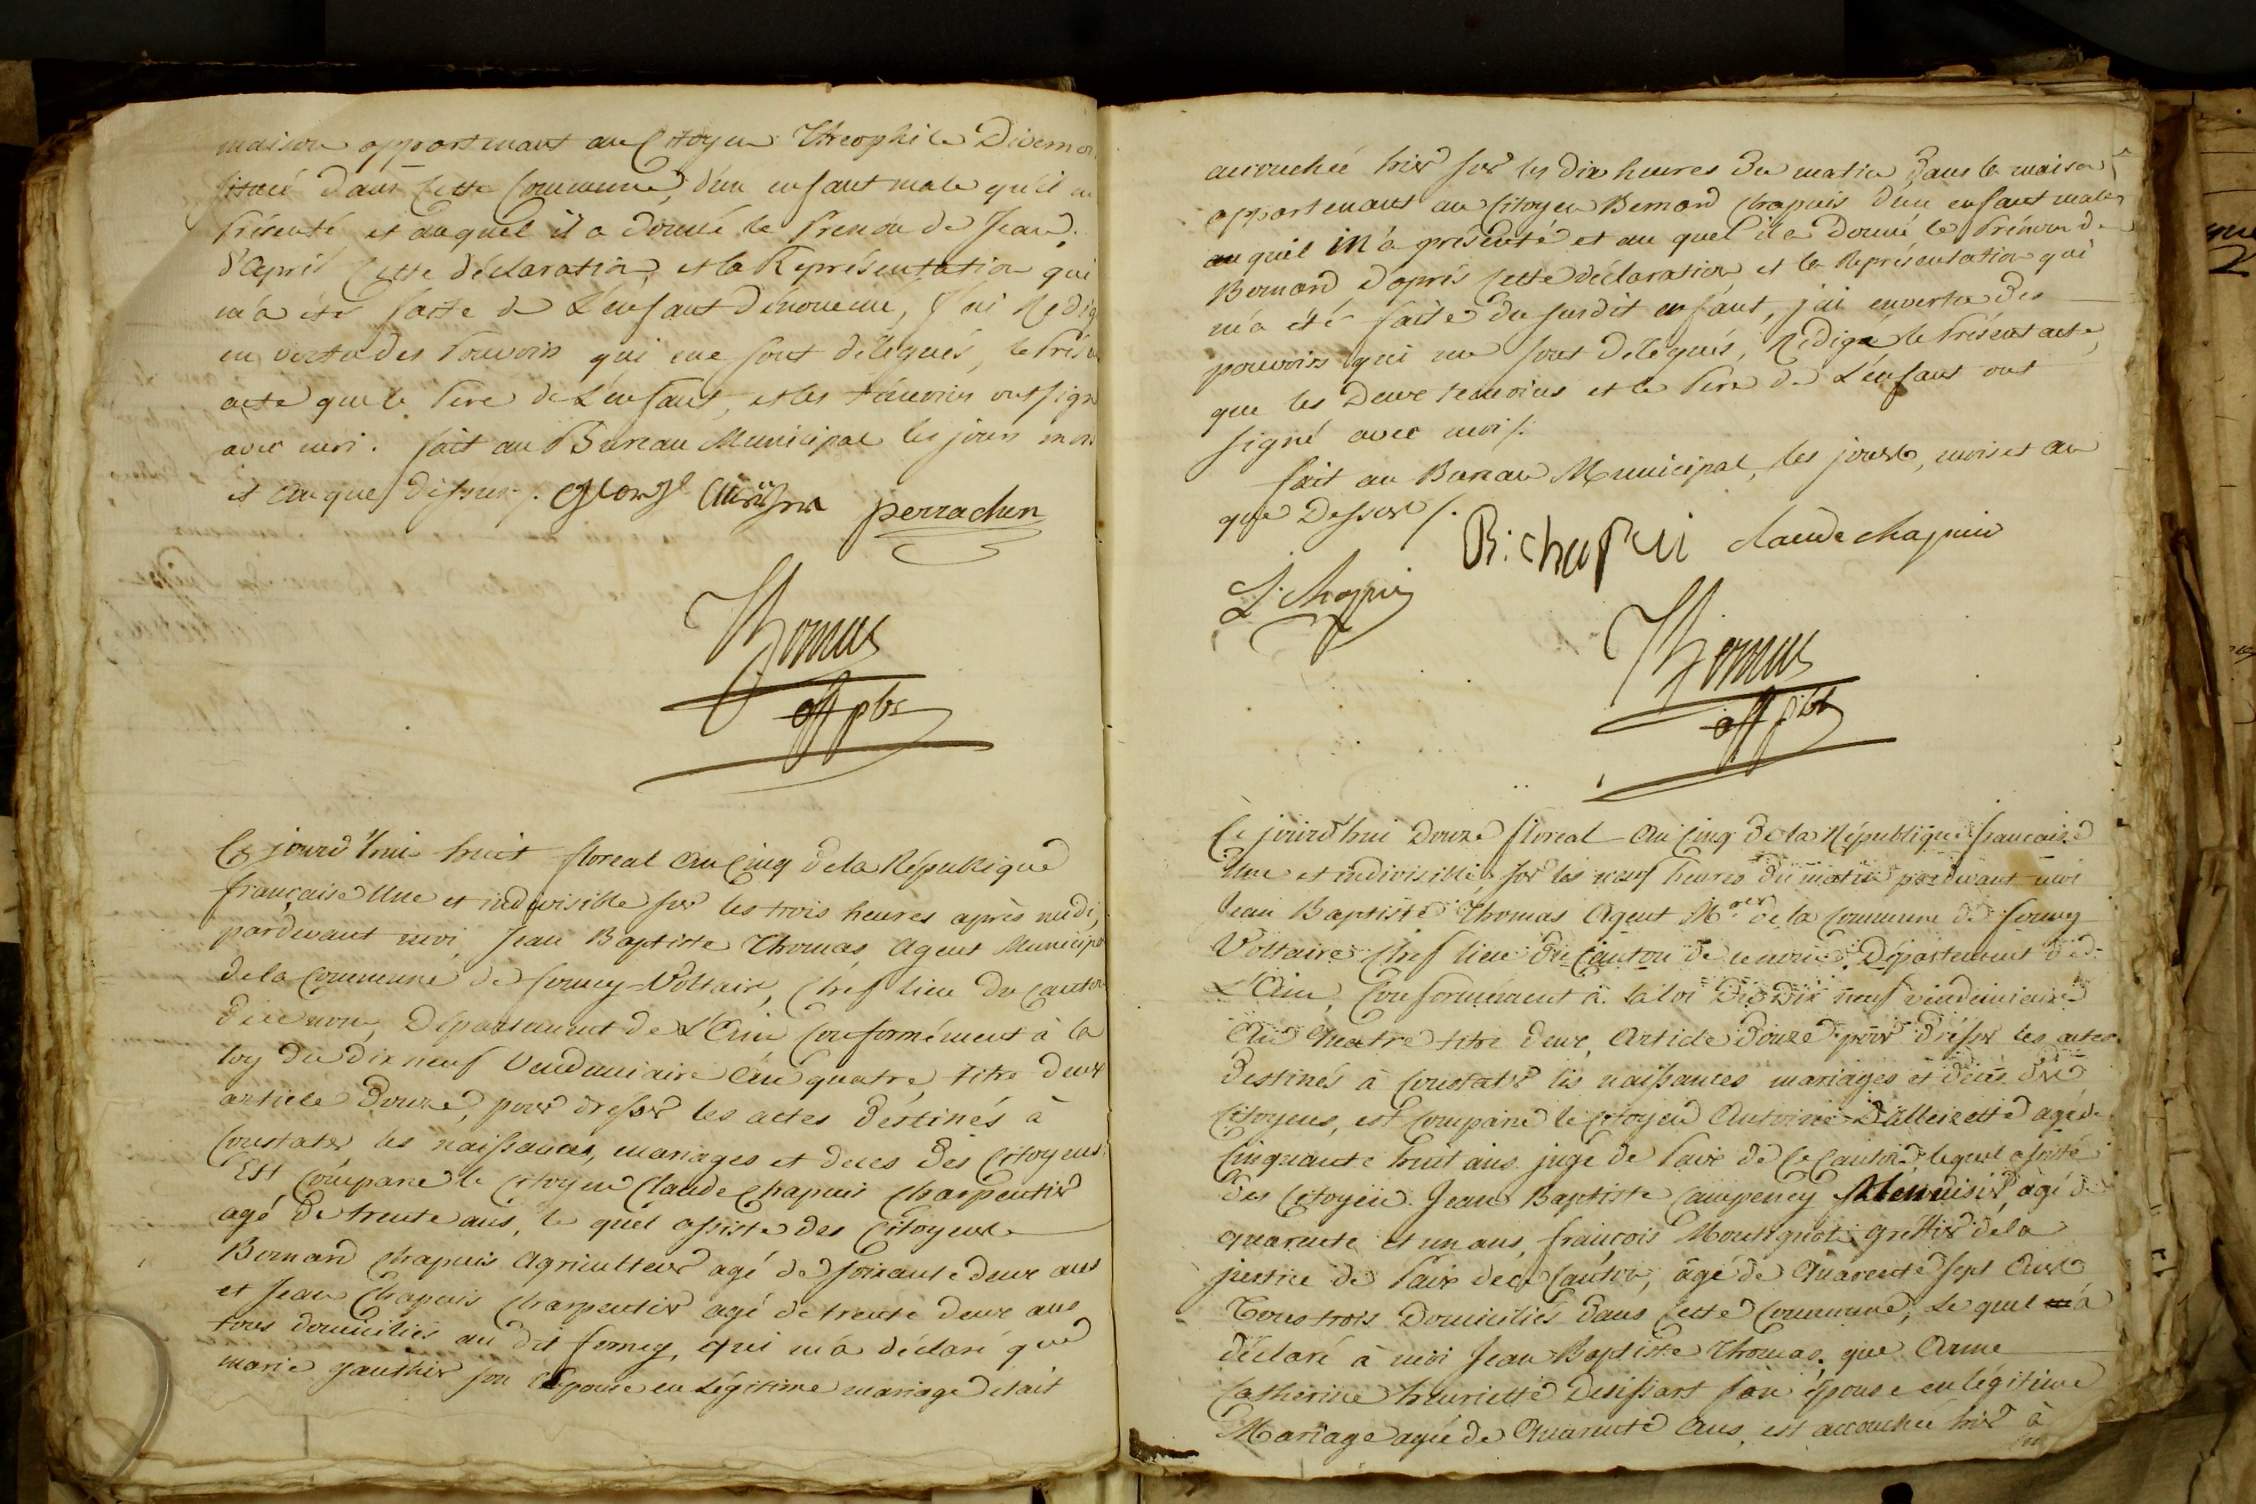 maison appartenant au Citoyen Théophile Divernoi
située dans cette Commune, d'un enfant male qu'il m
Présenté et auquel il a donné le Prenom de Jean.
d'après Cette déclaration et la Représentation qui
m'a été faite de L'enfant dénommé, J'ai Rédig
en vertu des Pouvoirs qui me sont délégués, le Prés
acte que le Pere de L'enfant, et les témoins ont sign
avec moi. fait au Bureau Municipal les jours mois
et an que dessus.
perrachon
Thomas
off pbc
Ce jourd'hui huit floreal an Cinq de la République
française Une et indivisible sur les trois heures après midi,
pardevant moi, Jean Baptiste Thomas, Agent Municipa
de la Commune de ferney-Voltaire, Chef lieu du Canton
de ce nom, Département de L'Ain Conformément à la
loy du dix neuf Vendemiaire An quatre, titre deux
article Douze, pour dresser les actes déstinés à
Constater les naissances, mariages et deces des Citoyens
Est Comparu le Citoyen Claude Chapuis Charpentier
agé de trente ans, le quel assisté des Citoyens
Bernard Chapuis Agriculteur agé de soixante deux ans
et Jean Chapuis Charpentier agé de trente deux ans
tous domiciliés au dit ferney, qui m'a déclaré que
marie gauthier son Epouse en Légitime mariage était
accouchée hier sur les dix heures du matin dans la maison
appartenant au Citoyen Bernard Chapuis d'un enfant male
au quil m'a présenté et au quel il a donné le Prénom de
Bernard d'après Cette déclaration et la Représentation qui
m'a été faite du susdit enfant, j'ai en vertu des
pouvoirs qui me sont délégués, Rédigé le Présent acte,
que les Deux temoins et le Pere de L'enfant ont
signé avec moi /.
fait au Bureau Municipal, les jours, mois et an
que Dessus /.
B: chapui claude chapuis
J: Chapuis
Thomas
off pbt
Ce jourd'hui Douze floreal An Cinq de la République française
Une et indivisible, sur les neuf heures du matin pardevant moi
Jean Baptiste Thomas Agent M.al de la Commune de ferney
Voltaire Chef lieu du Canton de ce nom, Département de
L'Ain, Conformément à la loi du Dix neuf vendemiaire
An Quatre titre deux, Article Douze pour Dresser les actes
Destinés à Constater les naissances mariages et décès des
Citoyens, est Comparu le Citoyen Antoine Dallerette agé de
Cinquante huit ans juge de Paix de Ce Canton, lequel assisté
des Citoyen Jean Baptiste Campeney Menuisier, agé de
quarente et un ans, françois Montignot greffier de la
justice de Paix de ce Canton, âgé de Quarente sept Ans
Tous trois Domiciliés dans Cette Commune, Le quel m'a
déclaré à moi Jean Baptiste Thomas, que Anne
Catherine henriette Desissart son épouse en légitime
Mariage agée de Quarente Ans, est accouchée hier à